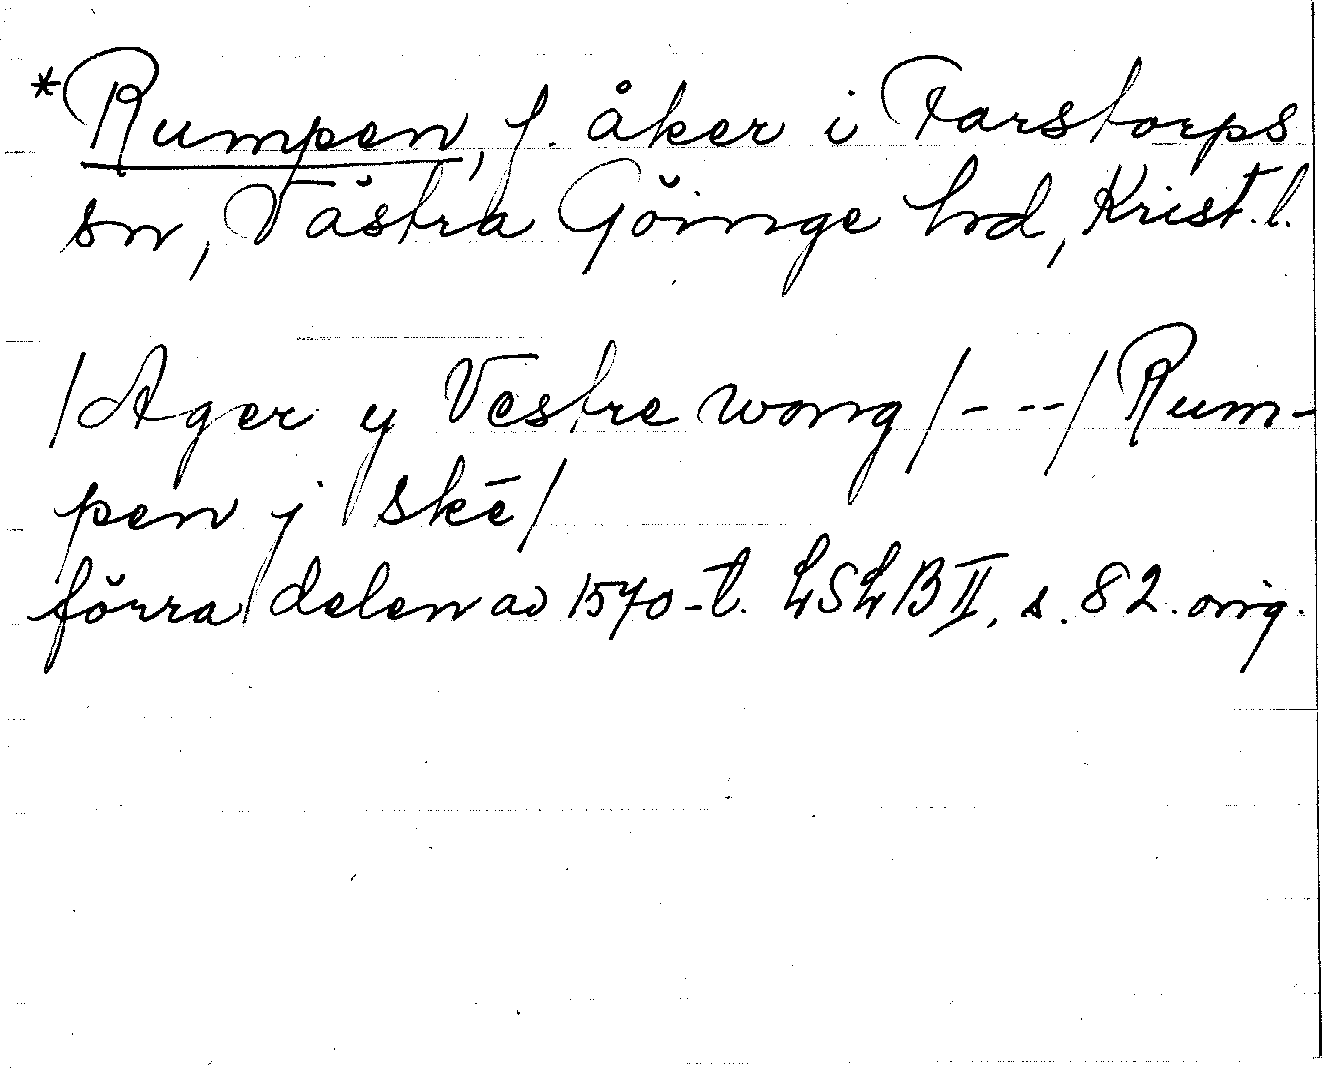 *Rumpen, f. åker i Farstorps
sn, Västra Göinge hd, Krist. l.
/Ager y Vestre wong/---/Rum-
pen j skē/
förra delen av 1570-t. LSLB II, s. 82. orig.